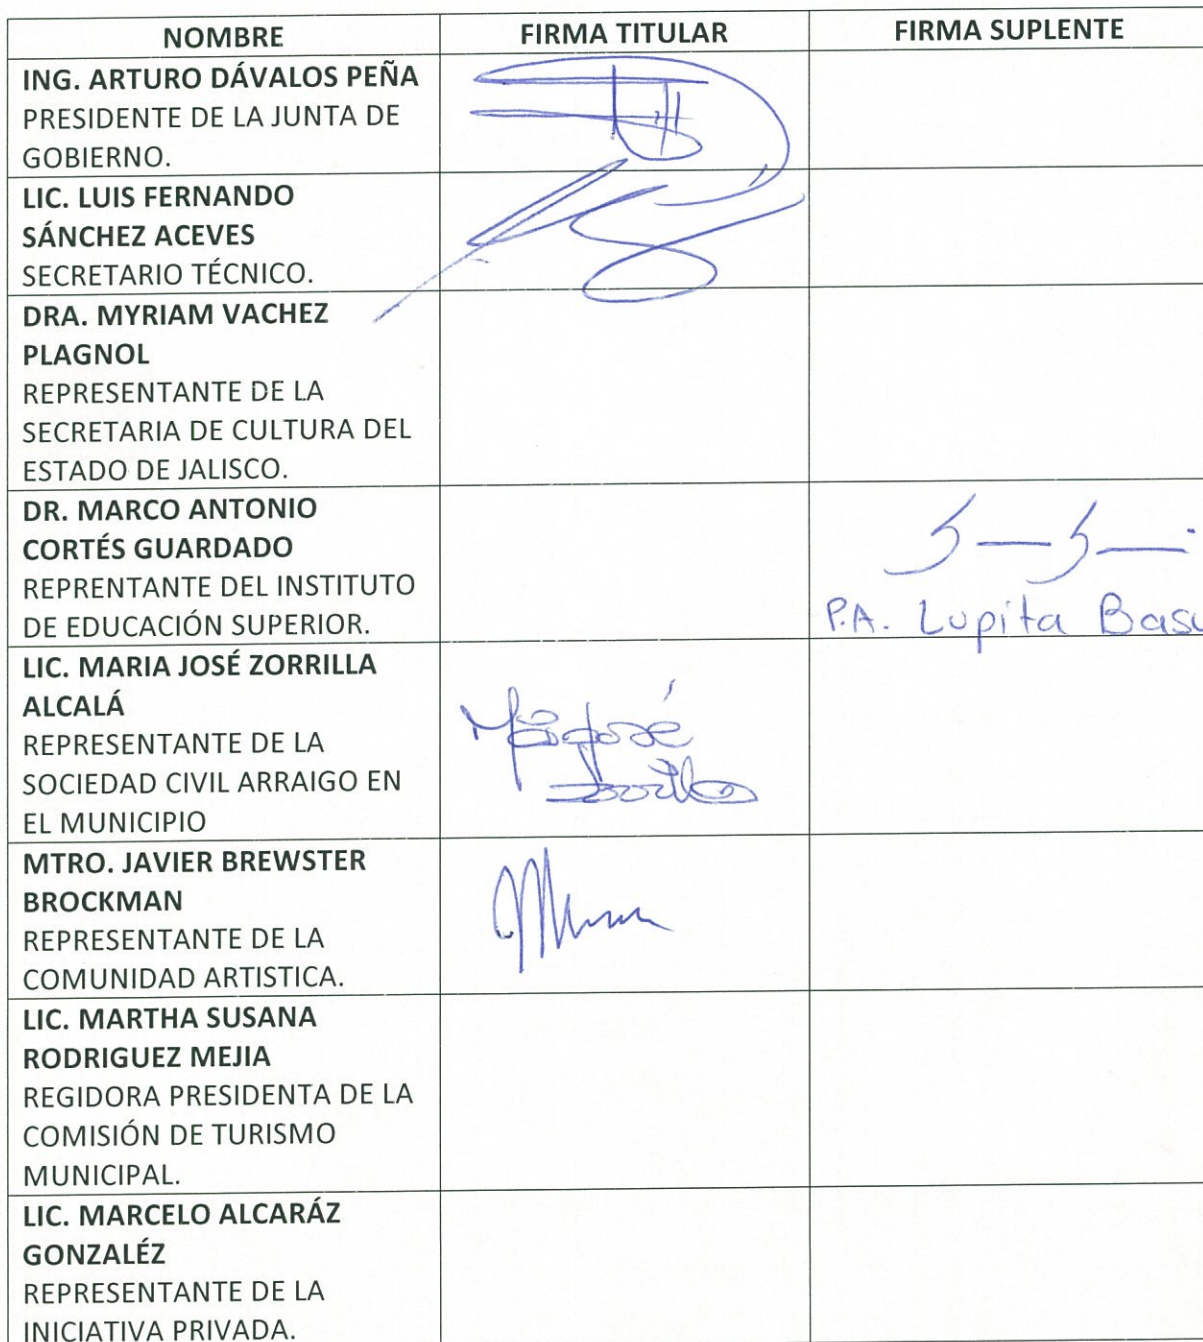 NOMBRE FIRMA TITULAR FIRMA SUPLENTE
ING. ARTURO DÁVALOS PEÑA
PRESIDENTE DE LA JUNTA DE
GOBIERNO.
LIC. LUIS FERNANDO
SÁNCHEZ ACEVES
SECRETARIO TÉCNICO.
DRA. MYRIAM VACHEZ
PLAGNOL
REPRESENTANTE DE LA
SECRETARIA DE CULTURA DEL
ESTADO DE JALISCO.
DR. MARCO ANTONIO
CORTÉS GUARDADO
REPRENTANTE DEL INSTITUTO
DE EDUCACIÓN SUPERIOR.
P.A. Lupita
LIC. MARIA JOSÉ ZORRILLA
ALCALÁ
REPRESENTANTE DE LA
SOCIEDAD CIVIL ARRAIGO EN
EL MUNICIPIO
MTRO. JAVIER BREWSTER
BROCKMAN
REPRESENTANTE DE LA
COMUNIDAD ARTISTICA.
LIC. MARTHA SUSANA
RODRIGUEZ MEJIA
REGIDORA PRESIDENTA DE LA
COMISIÓN DE TURISMO
MUNICIPAL.
LIC. MARCELO ALCARÁZ
GONZALÉZ
REPRESENTANTE DE LA
INICIATIVA PRIVADA.